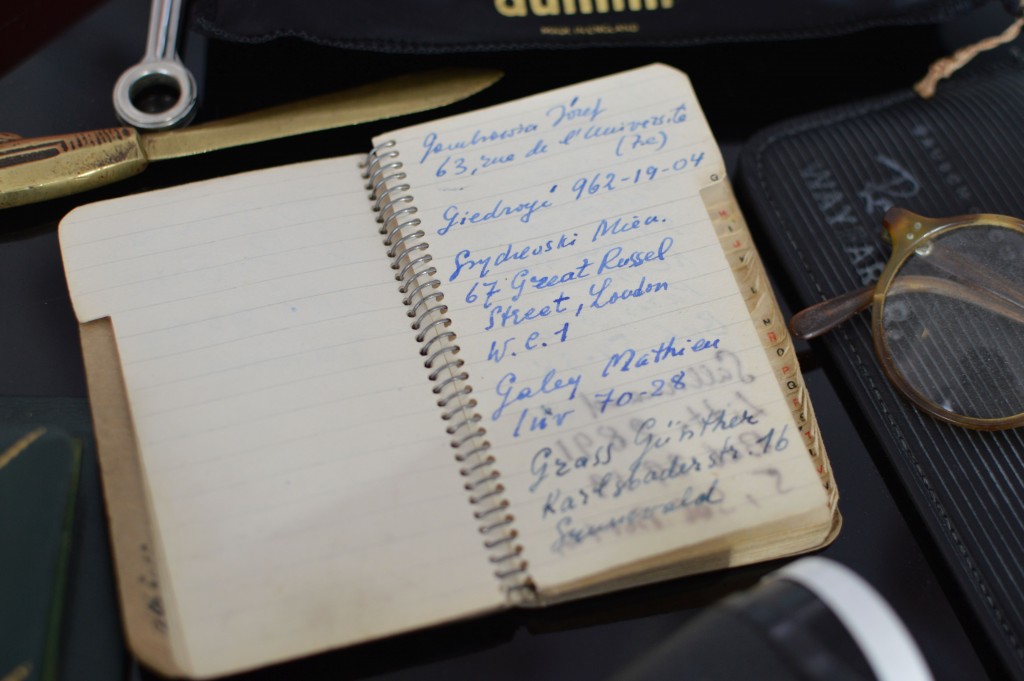 dunhill
MADE IN ENGLAND
Józef
63, rue de l'Université
(7e)
Giedroyć 962-19-04
Grydzewski Miecz.
67 Great Russel
Street, London
W.C.1
Galey Mathieu
70-28
Grass Günther
Karlsbaderstr. 16
Grunewald
WAY